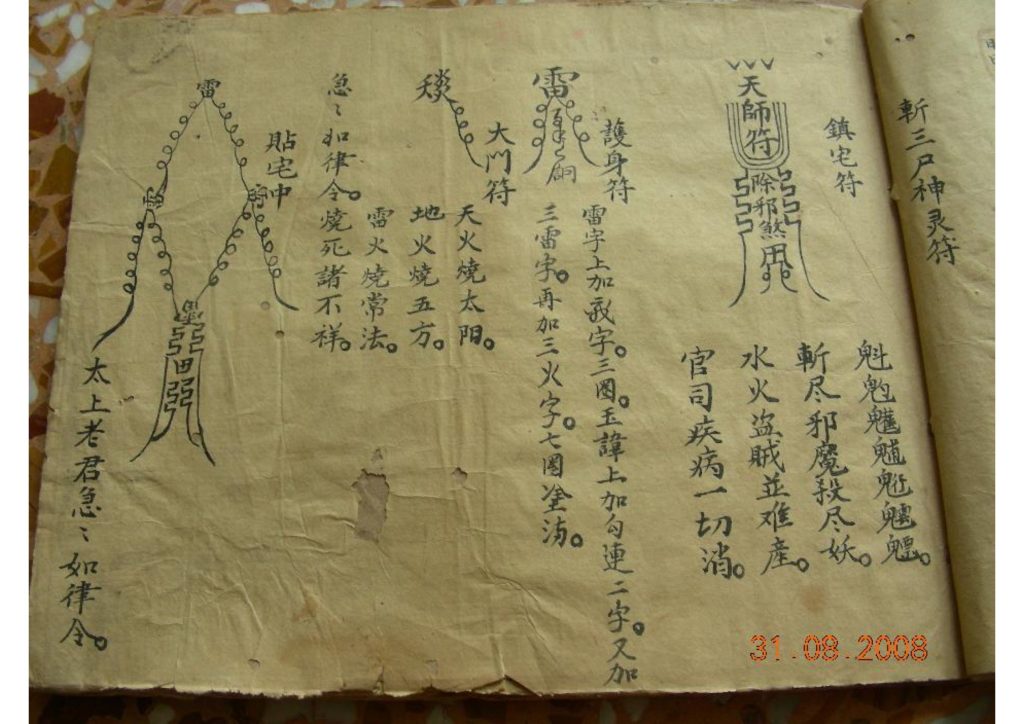 斬三尸神灵符
鎮宅符
天師符
除邪煞
斬尽邪魔殺尽妖。
水火盜賊並难產。
官司疾病一切消。
護身符
雷字上加敕字。三圈。玉諱上加勾連二字。又加
三雷字。再加三火字。七圈塗沩。
雷
大門符
天火燒太阳。
地火燒五方。
雷火燒常法。
燒死諸不祥。
急〻如律令。
貼宅中
雷
太上老君急〻如律令。
31.08.2008